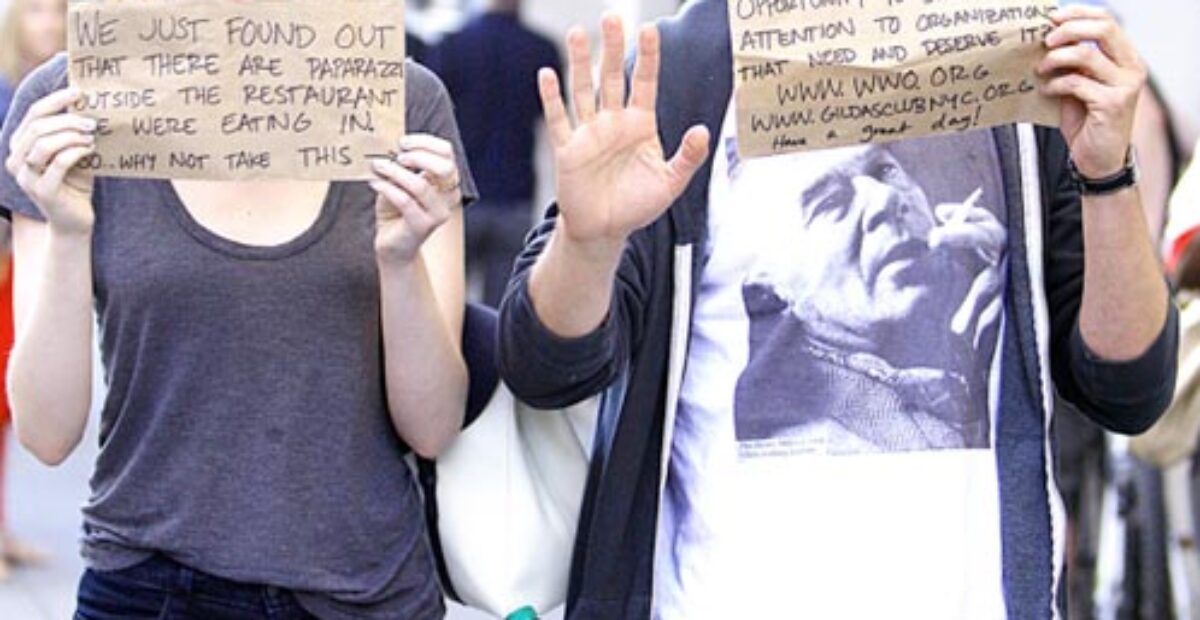 WE JUST FOUND OUT
THAT THERE ARE PAPARAZZI
OUTSIDE THE RESTAURANT
WE WERE EATING IN.
SO..WHY NOT TAKE THIS →
OPPORTUNITY TO
ATTENTION TO ORGANIZATIONS
THAT NEED AND DESERVE IT?
WWW.WWO.ORG
WWW.GILDASCLUBNYC.ORG
Have a great day!